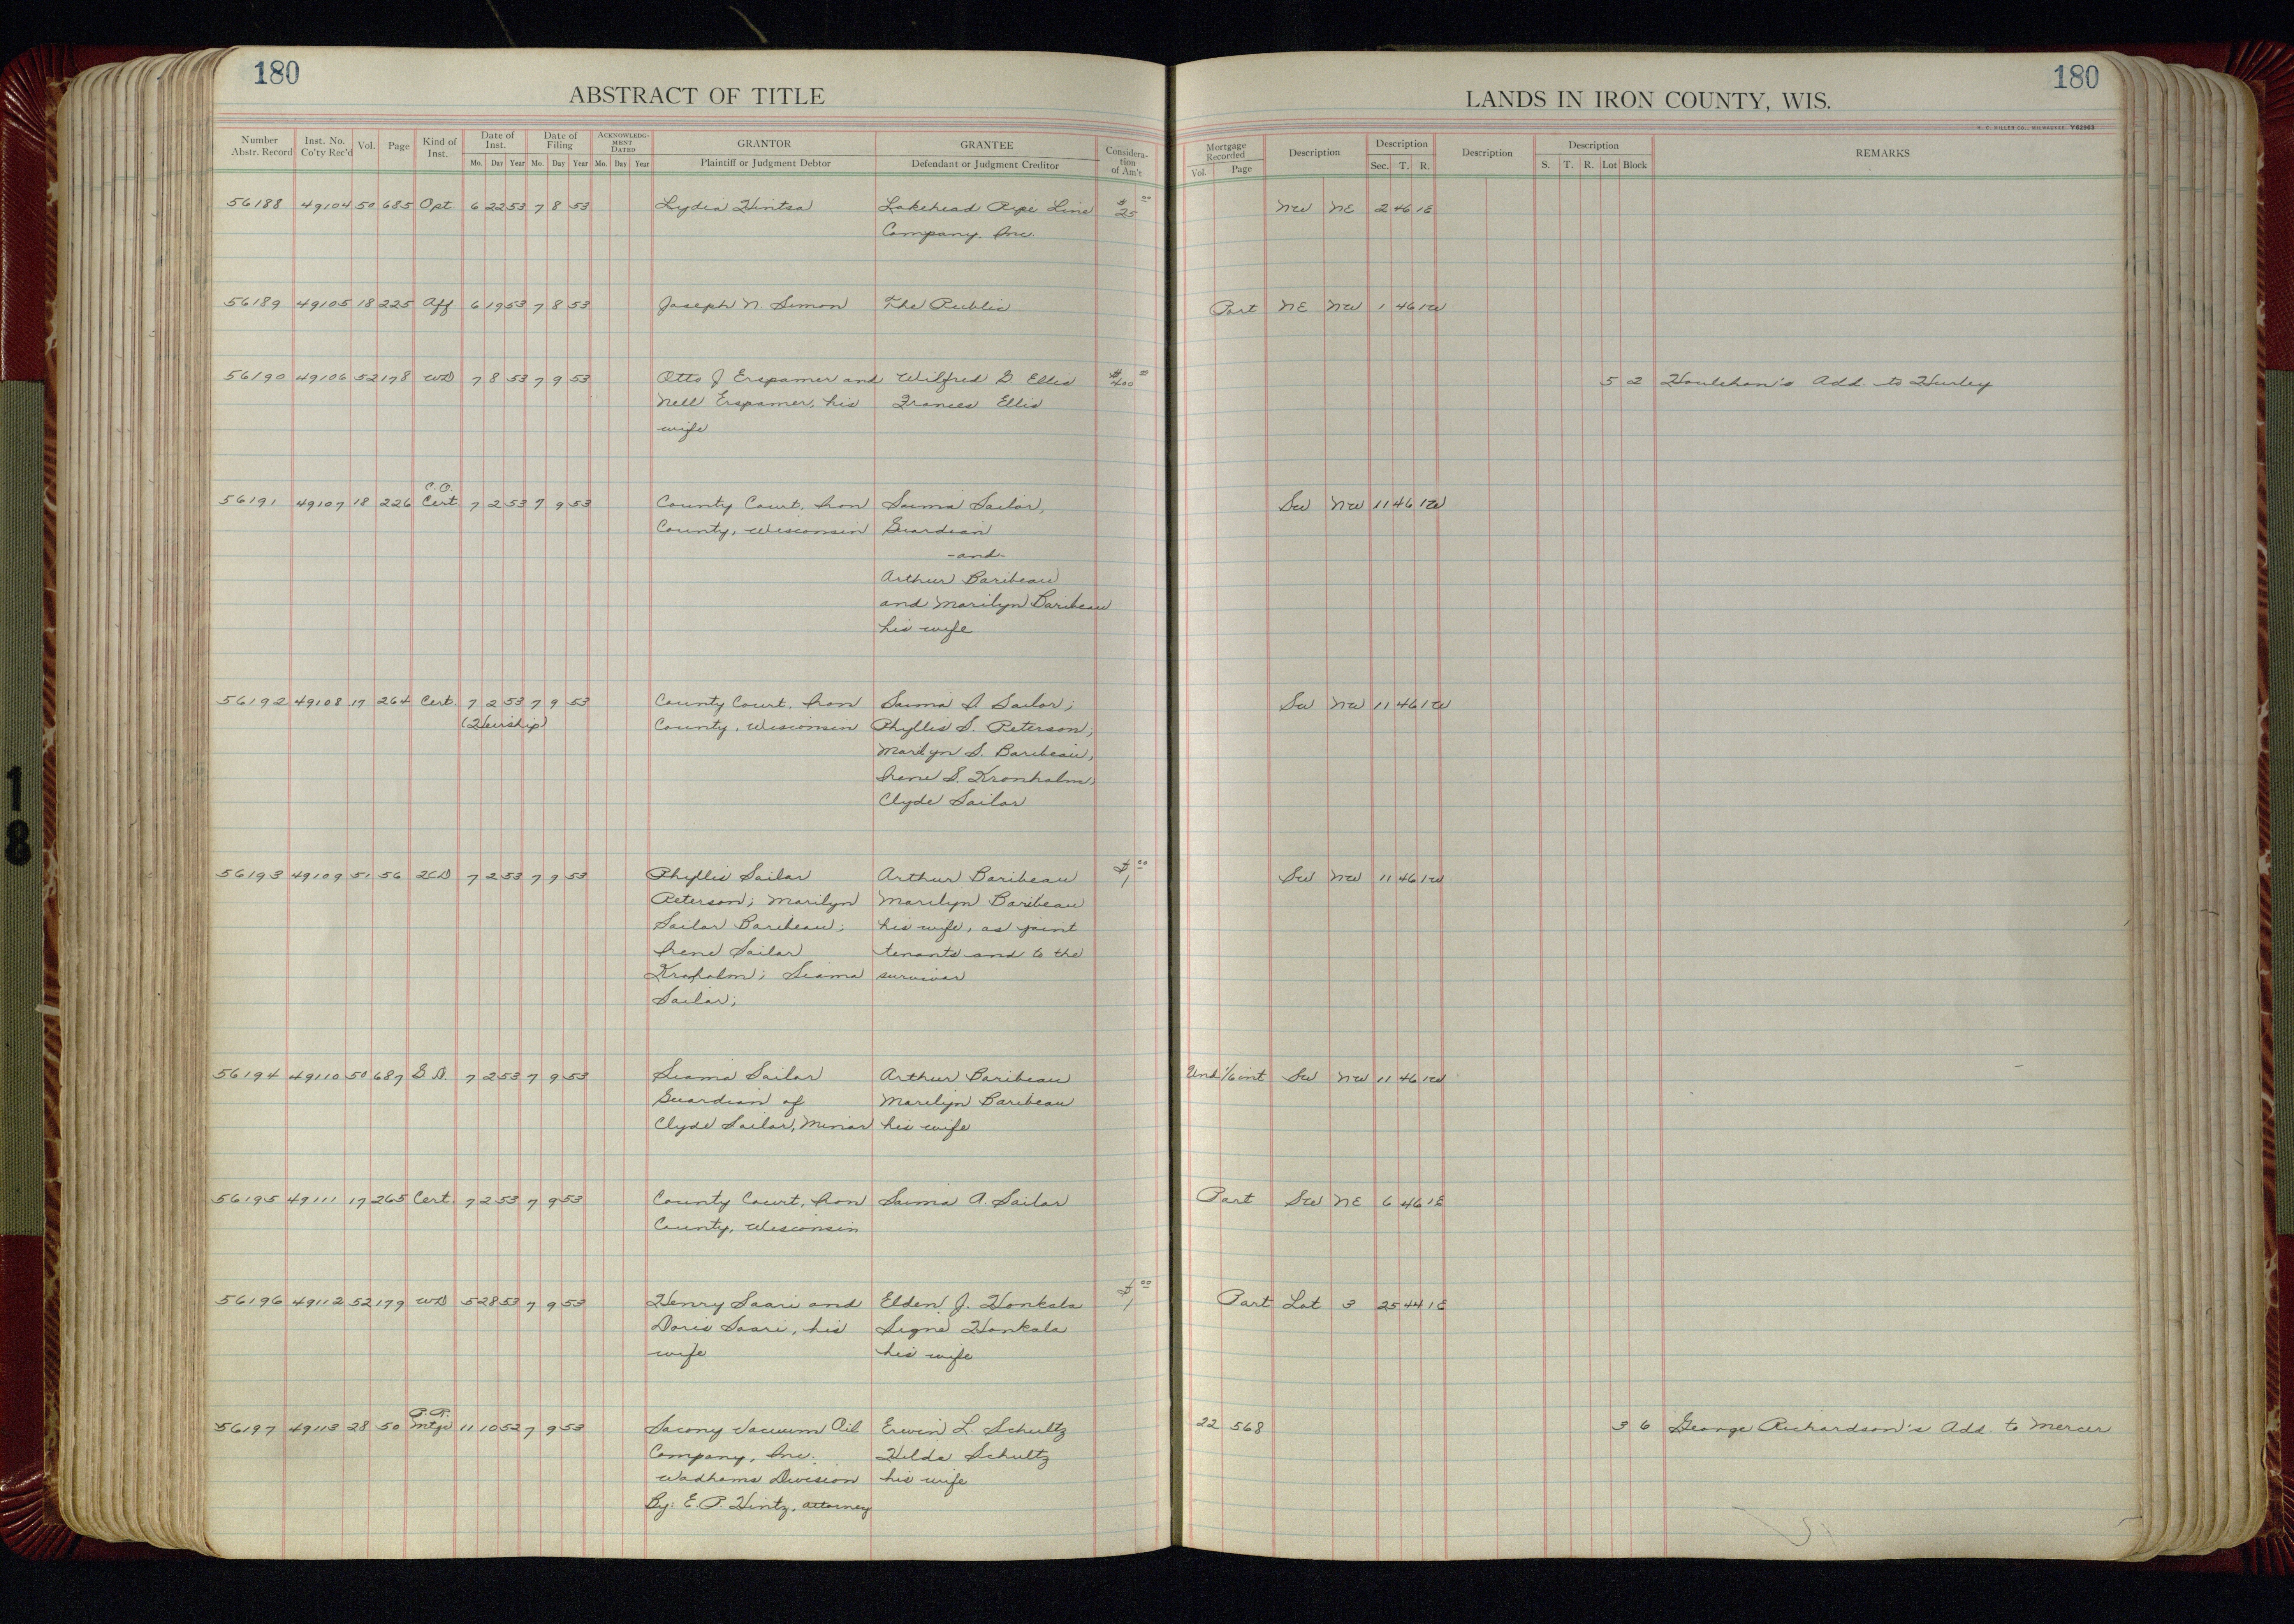 180
ABSTRACT OF TITLE
180
LANDS IN IRON COUNTY, WIS.
H. C. MILLER CO., MILWAUKEE Y62963
Number Abstr. Record | Inst. No. Co'ty Rec'd | Vol. | Page | Kind of Inst. | Date of Inst. Mo. Day Year | Date of Filing Mo. Day Year | ACKNOWLEDGMENT DATED Mo. Day Year | GRANTOR Plaintiff or Judgment Debtor | GRANTEE Defendant or Judgment Creditor | Consideration of Am't | Mortgage Recorded Vol. Page | Description | Description Sec. T. R. | Description | Description S. T. R. Lot Block | REMARKS
56188 49104 50 685 Opt. 6 22 53 7 8 53 Lydia Hintsa Lakehead Pipe Line $25 00 NW NE 2 46 1E
Company, Inc.
56189 49105 18 225 Aff 6 19 53 7 8 53 Joseph N. Simon The Public Part NE NW 1 46 1W
56190 49106 52 178 WD 7 8 53 7 9 53 Otto J Erspamer and Wilfred D. Ellis $400 00 5 2 Houlehan's Add. to Hurley
Nell Erspamer, his Frances Ellis
wife
C.O.
56191 49107 18 226 Cert 7 2 53 7 9 53 County Court, Iron Saima Sailor, SW NW 11 46 1W
County, Wisconsin Guardian
-and-
Arthur Baribeau
and Marilyn Baribeau
his wife
56192 49108 17 264 Cert. 7 2 53 7 9 53 County Court, Iron Saima A Sailor; SW NW 11 46 1W
(Heirship) County, Wisconsin Phyllis S. Peterson;
Marilyn S. Baribeau,
Irene S. Kronholm,
Clyde Sailor
56193 49109 51 56 QCD 7 2 53 7 9 53 Phyllis Sailor Arthur Baribeau $1 00 SW NW 11 46 1W
Peterson; Marilyn Marilyn Baribeau
Sailor Baribeau; his wife, as joint
Irene Sailor tenants and to the
Kronholm; Siama survivor
Sailor;
56194 49110 50 687 G.D. 7 2 53 7 9 53 Siama Sailor Arthur Baribeau Und 1/6 int SW NW 11 46 1W
Guardian of Marilyn Baribeau
Clyde Sailor, Minor his wife
56195 49111 17 265 Cert. 7 2 53 7 9 53 County Court, Iron Saima A. Sailor Part SW NE 6 46 1E
County, Wisconsin
56196 49112 52 179 WD 5 28 53 7 9 53 Henry Saari and Elden J. Honkala $1 00 Part Lot 3 25 44 1E
Doris Saari, his Signe Honkala
wife his wife
P.R.
56197 49113 28 50 Mtge 11 10 52 7 9 53 Socony Vacuum Oil Erwin L. Schultz 22 568 3 6 George Richardson's Add. to Mercer
Company, Inc. Hilda Schultz
Wadhams Division his wife
By: E. P. Hintz, attorney
18